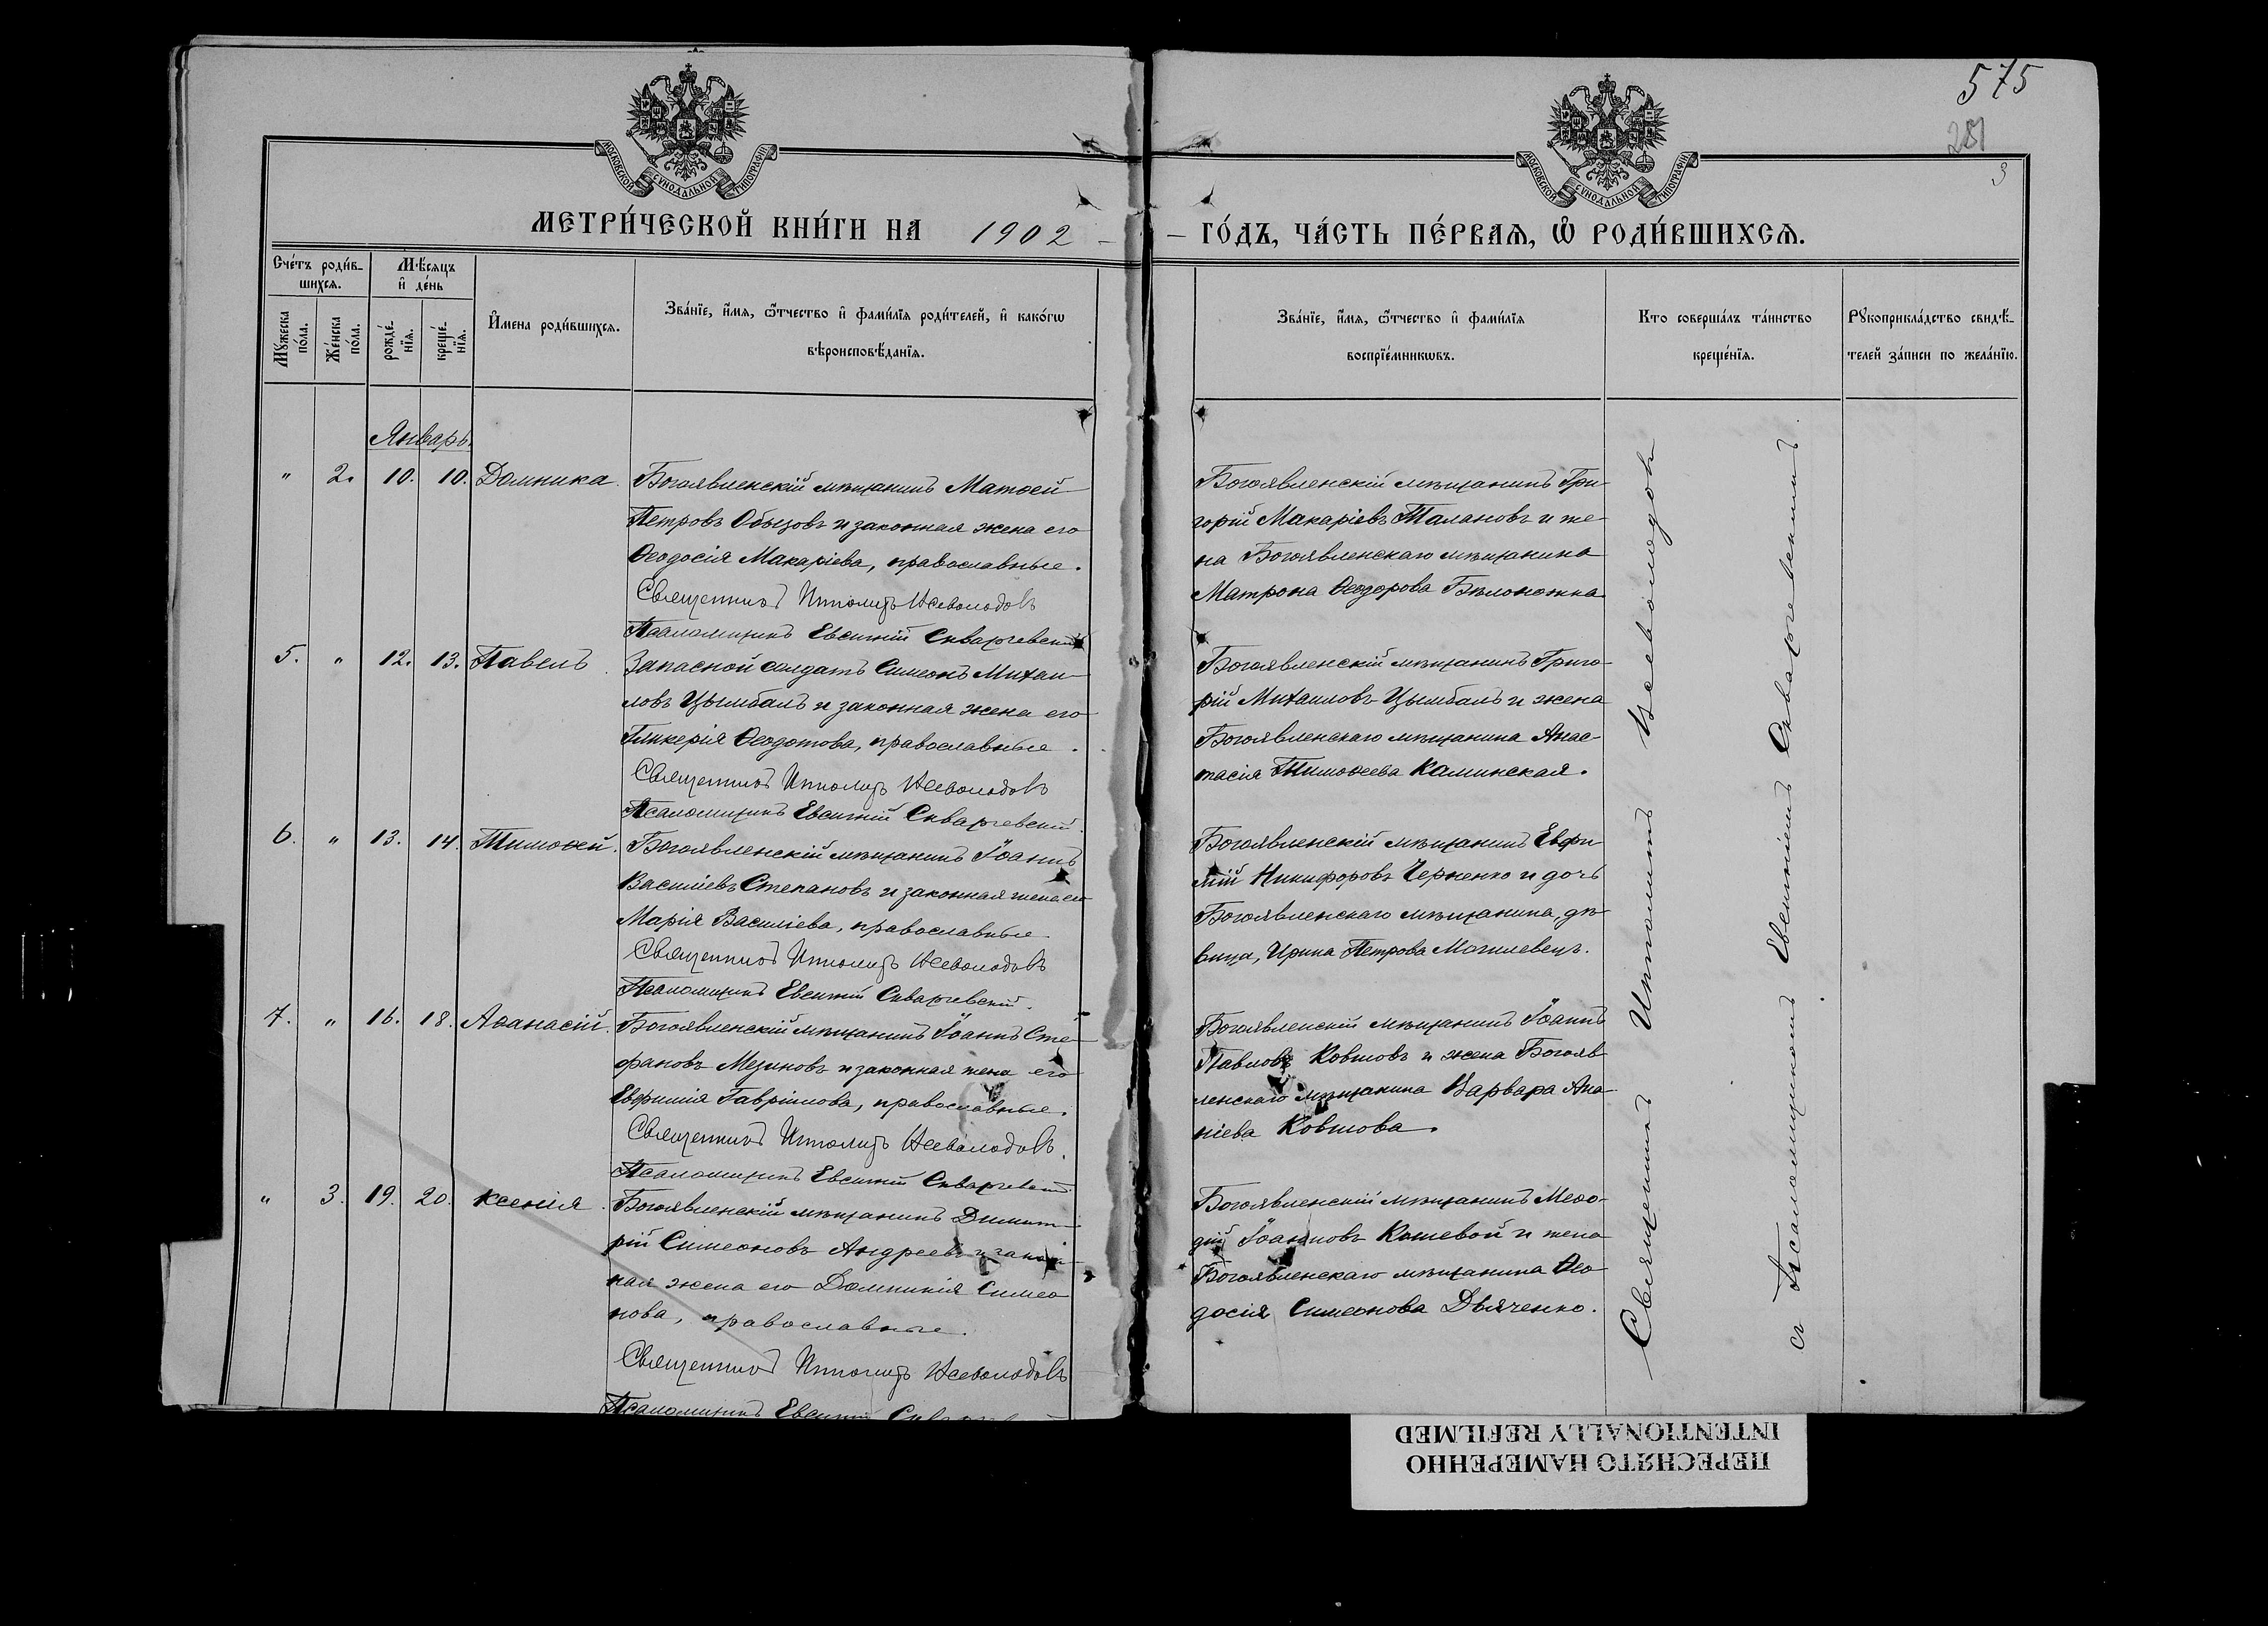 575
281
3
МОСКОВСКОЙ СУНОДАЛЬНОЙ ТИПОГРАФІИ
МОСКОВСКОЙ СУНОДАЛЬНОЙ ТИПОГРАФІИ
МЕТРИ́ЧЕСКОЙ КНИ́ГИ НА 1902
ГО́ДЪ, ЧА́СТЬ ПЕ́РВАѦ, Ѡ РОДИ́ВШИХСѦ.
Сче́тъ роди́в-
шихсѧ.
Мꙋ́жеска по́ла.
Же́нска по́ла.
Мѣ́сѧцъ
и҆ де́нь
рожде́-
нїѧ.
креще́-
нїѧ.
И҆мена роди́вшихсѧ.
Зва́нїе, и҆́мѧ, ѻ҆́тчество и҆ фами́лїѧ роди́телей, и҆ како́гѡ
вѣроисповѣ́данїѧ.
Зва́нїе, и҆́мѧ, ѻ҆́тчество и҆ фами́лїѧ
воспрїе́мникѡвъ.
Кто соверша́лъ та́инство
креще́нїѧ.
Рꙋкоприкла́дство свидѣ́-
телей за́писи по жела́нїю.
Январь.
" 2. 10. 10. Домника.
Богоявленскій мѣщанинъ Матѳей
Петровъ Обызовъ и законная жена его
Ѳеодосія Макаріева, православные.
Священникъ Ипполитъ Всеволодовъ
Псаломщикъ Евгеній Скваржевскій
Богоявленскій мѣщанинъ Гри-
горій Макаріевъ Талановъ и же-
на Богоявленскаго мѣщанина
Матрона Ѳеодорова Бѣлоножка
5. " 12. 13. Павелъ.
Запасной солдатъ Симеонъ Михаи-
ловъ Цымбалъ и законная жена его
Гликерія Ѳеодотова, православные.
Священникъ Ипполитъ Всеволодовъ
Псаломщикъ Евгеній Скваржевскій.
Богоявленскій мѣщанинъ Григо-
рій Михаиловъ Цымбалъ и жена
Богоявленскаго мѣщанина Анас-
тасія Тимоѳеева Каминская.
6. " 13. 14. Тимоѳей.
Богоявленскій мѣщанинъ Іоаннъ
Василіевъ Степановъ и законная жена его
Марія Василіева, православные.
Священникъ Ипполитъ Всеволодовъ
Псаломщикъ Евгеній Скваржевскій.
Богоявленскій мѣщанинъ Евфи-
мій Никифоровъ Черненко и дочь
Богоявленскаго мѣщанина, дѣ-
вица, Ирина Петрова Могилевецъ.
7. " 16. 18. Аѳанасій.
Богоявленскій мѣщанинъ Іоаннъ Сте-
фановъ Мезиновъ и законная жена его
Евфимія Гавріилова, православные.
Священникъ Ипполитъ Всеволодовъ.
Псаломщикъ Евгеній Скваржевскій
Богоявленскій мѣщанинъ Іоаннъ
Павловъ Ковшовъ и жена Богояв-
ленскаго мѣщанина Варвара Ана-
ніева Ковшова.
" 3. 19. 20. Ксенія.
Богоявленскій мѣщанинъ Димит-
рій Симеоновъ Андреевъ и закон-
ная жена его Домникія Симео-
нова, православные.
Священникъ Ипполитъ Всеволодовъ
Псаломщикъ Евгеній
Богоявленскій мѣщанинъ Меѳо-
дій Іоанновъ Кошевой и жена
Богоявленскаго мѣщанина Ѳео-
досія Симеонова Дьяченко.
Священникъ Ипполитъ Всеволодовъ
съ Псаломщикомъ Евгеніемъ Скваржевскимъ.
ПЕРЕСНЯТО НАМЕРЕННО
INTENTIONALLY REFILMED